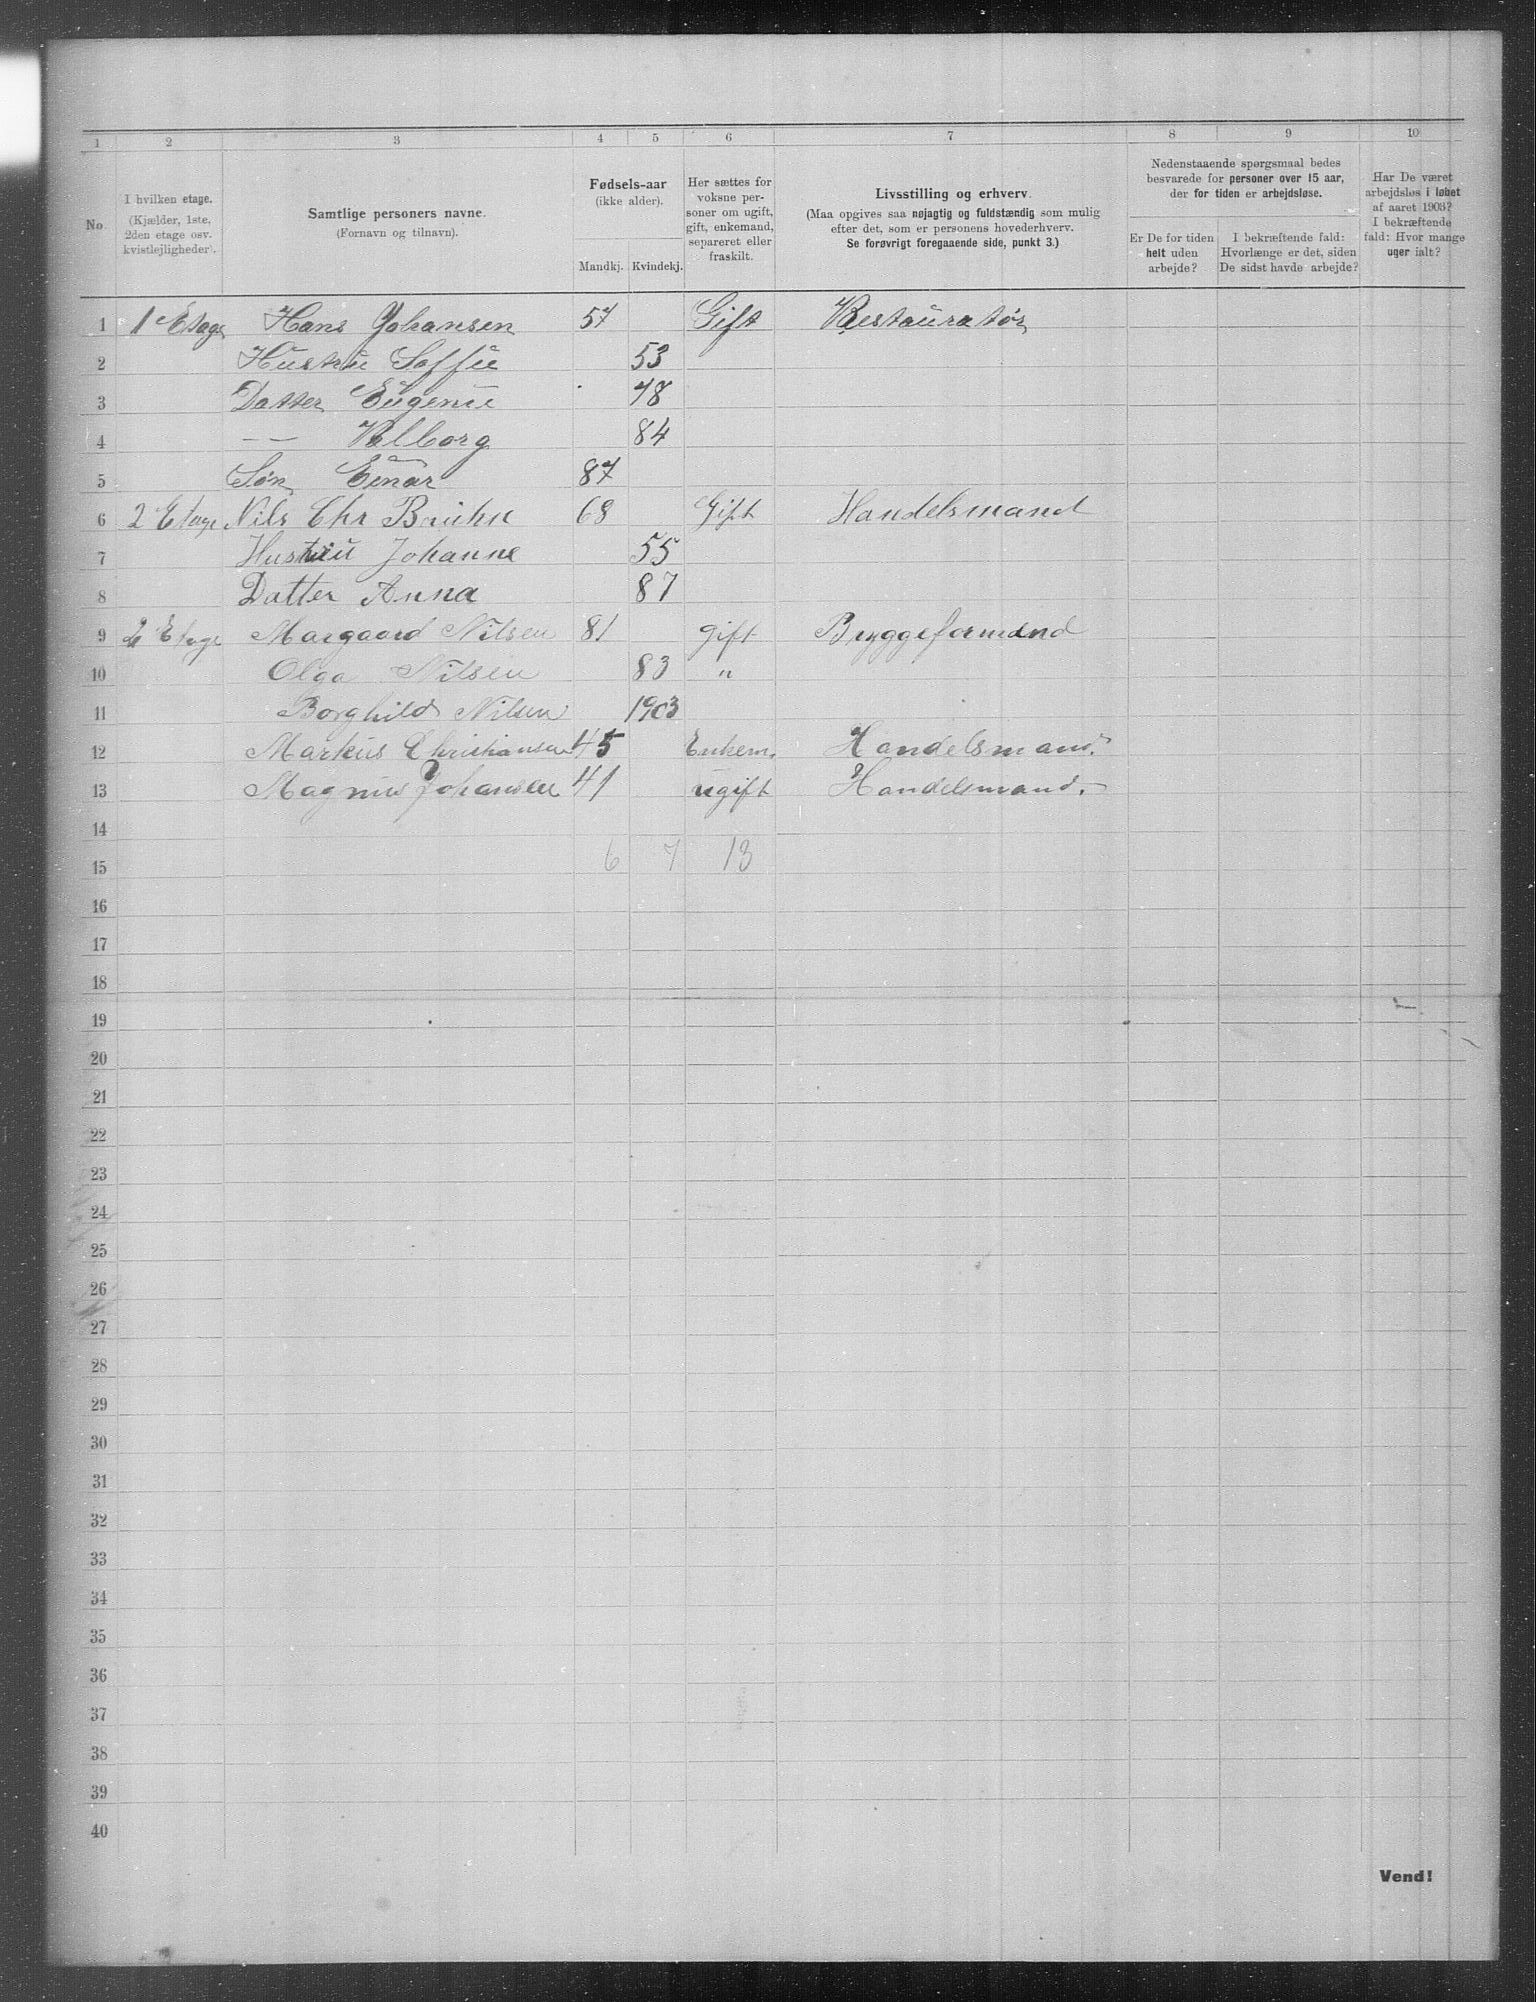 1 2 3 4 5 6 7 8 9 10
No.
I hvilken etage.
(Kjælder, 1ste, 2den etage osv. kvistlejligheder).
Samtlige personers navne.
(Fornavn og tilnavn).
Fødsels-aar
(ikke alder).
Mandkj. Kvindekj.
Her sættes for voksne personer om ugift, gift, enkemand, separeret eller fraskilt.
Livsstilling og erhverv.
(Maa opgives saa nøjagtig og fuldstændig som mulig
efter det, som er personens hovederhverv.
Se forøvrigt foregaaende side, punkt 3.)
Nedenstaaende spørgsmaal bedes
besvarede for personer over 15 aar,
der for tiden er arbejdsløse.
Er De for tiden helt uden arbejde?
I bekræftende fald: Hvorlænge er det, siden De sidst havde arbejde?
Har De været arbejdsløs i løbet af aaret 1903? I bekræftende fald: Hvor mange uger ialt?
1 1 Etage Hans Johansen 57 Gift Restauratør
2 Hustru Soffie 53
3 Datter Eugenie 78
4 — — Valborg 84
5 Søn Einar 87
6 2 Etage Nils Chr Bruhn 68 Gift Handelsmand
7 Hustru Johanne 55
8 Datter Anna 87
9 2 Etage Margaard Nilsen 81 gift Bryggeformand
10 Olga Nilsen 83 "
11 Borghild Nilsen 1903
12 Markus Christiansen 45 Enkem. Handelsmand.
13 Magnus Johansen 41 ugift Handelsmand.
14
15 6 7 13
16
17
18
19
20
21
22
23
24
25
26
27
28
29
30
31
32
33
34
35
36
37
38
39
40
Vend!